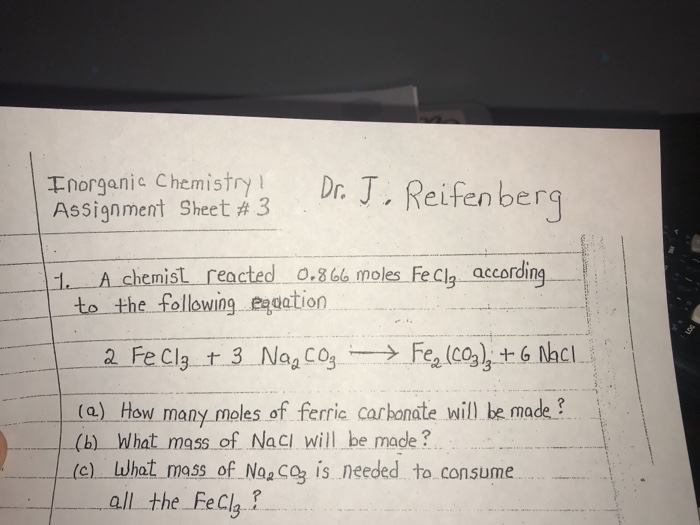 Inorganic Chemistry 1
Assignment Sheet # 3
Dr. J. Reifenberg
1. A chemist reacted 0.866 moles FeCl₃ according
to the following equation
2 FeCl₃ + 3 Na₂CO₃ → Fe₂(CO₃)₃ + 6 NaCl
(a) How many moles of ferric carbonate will be made?
(b) What mass of NaCl will be made?
(c) What mass of Na₂CO₃ is needed to consume
all the FeCl₃?